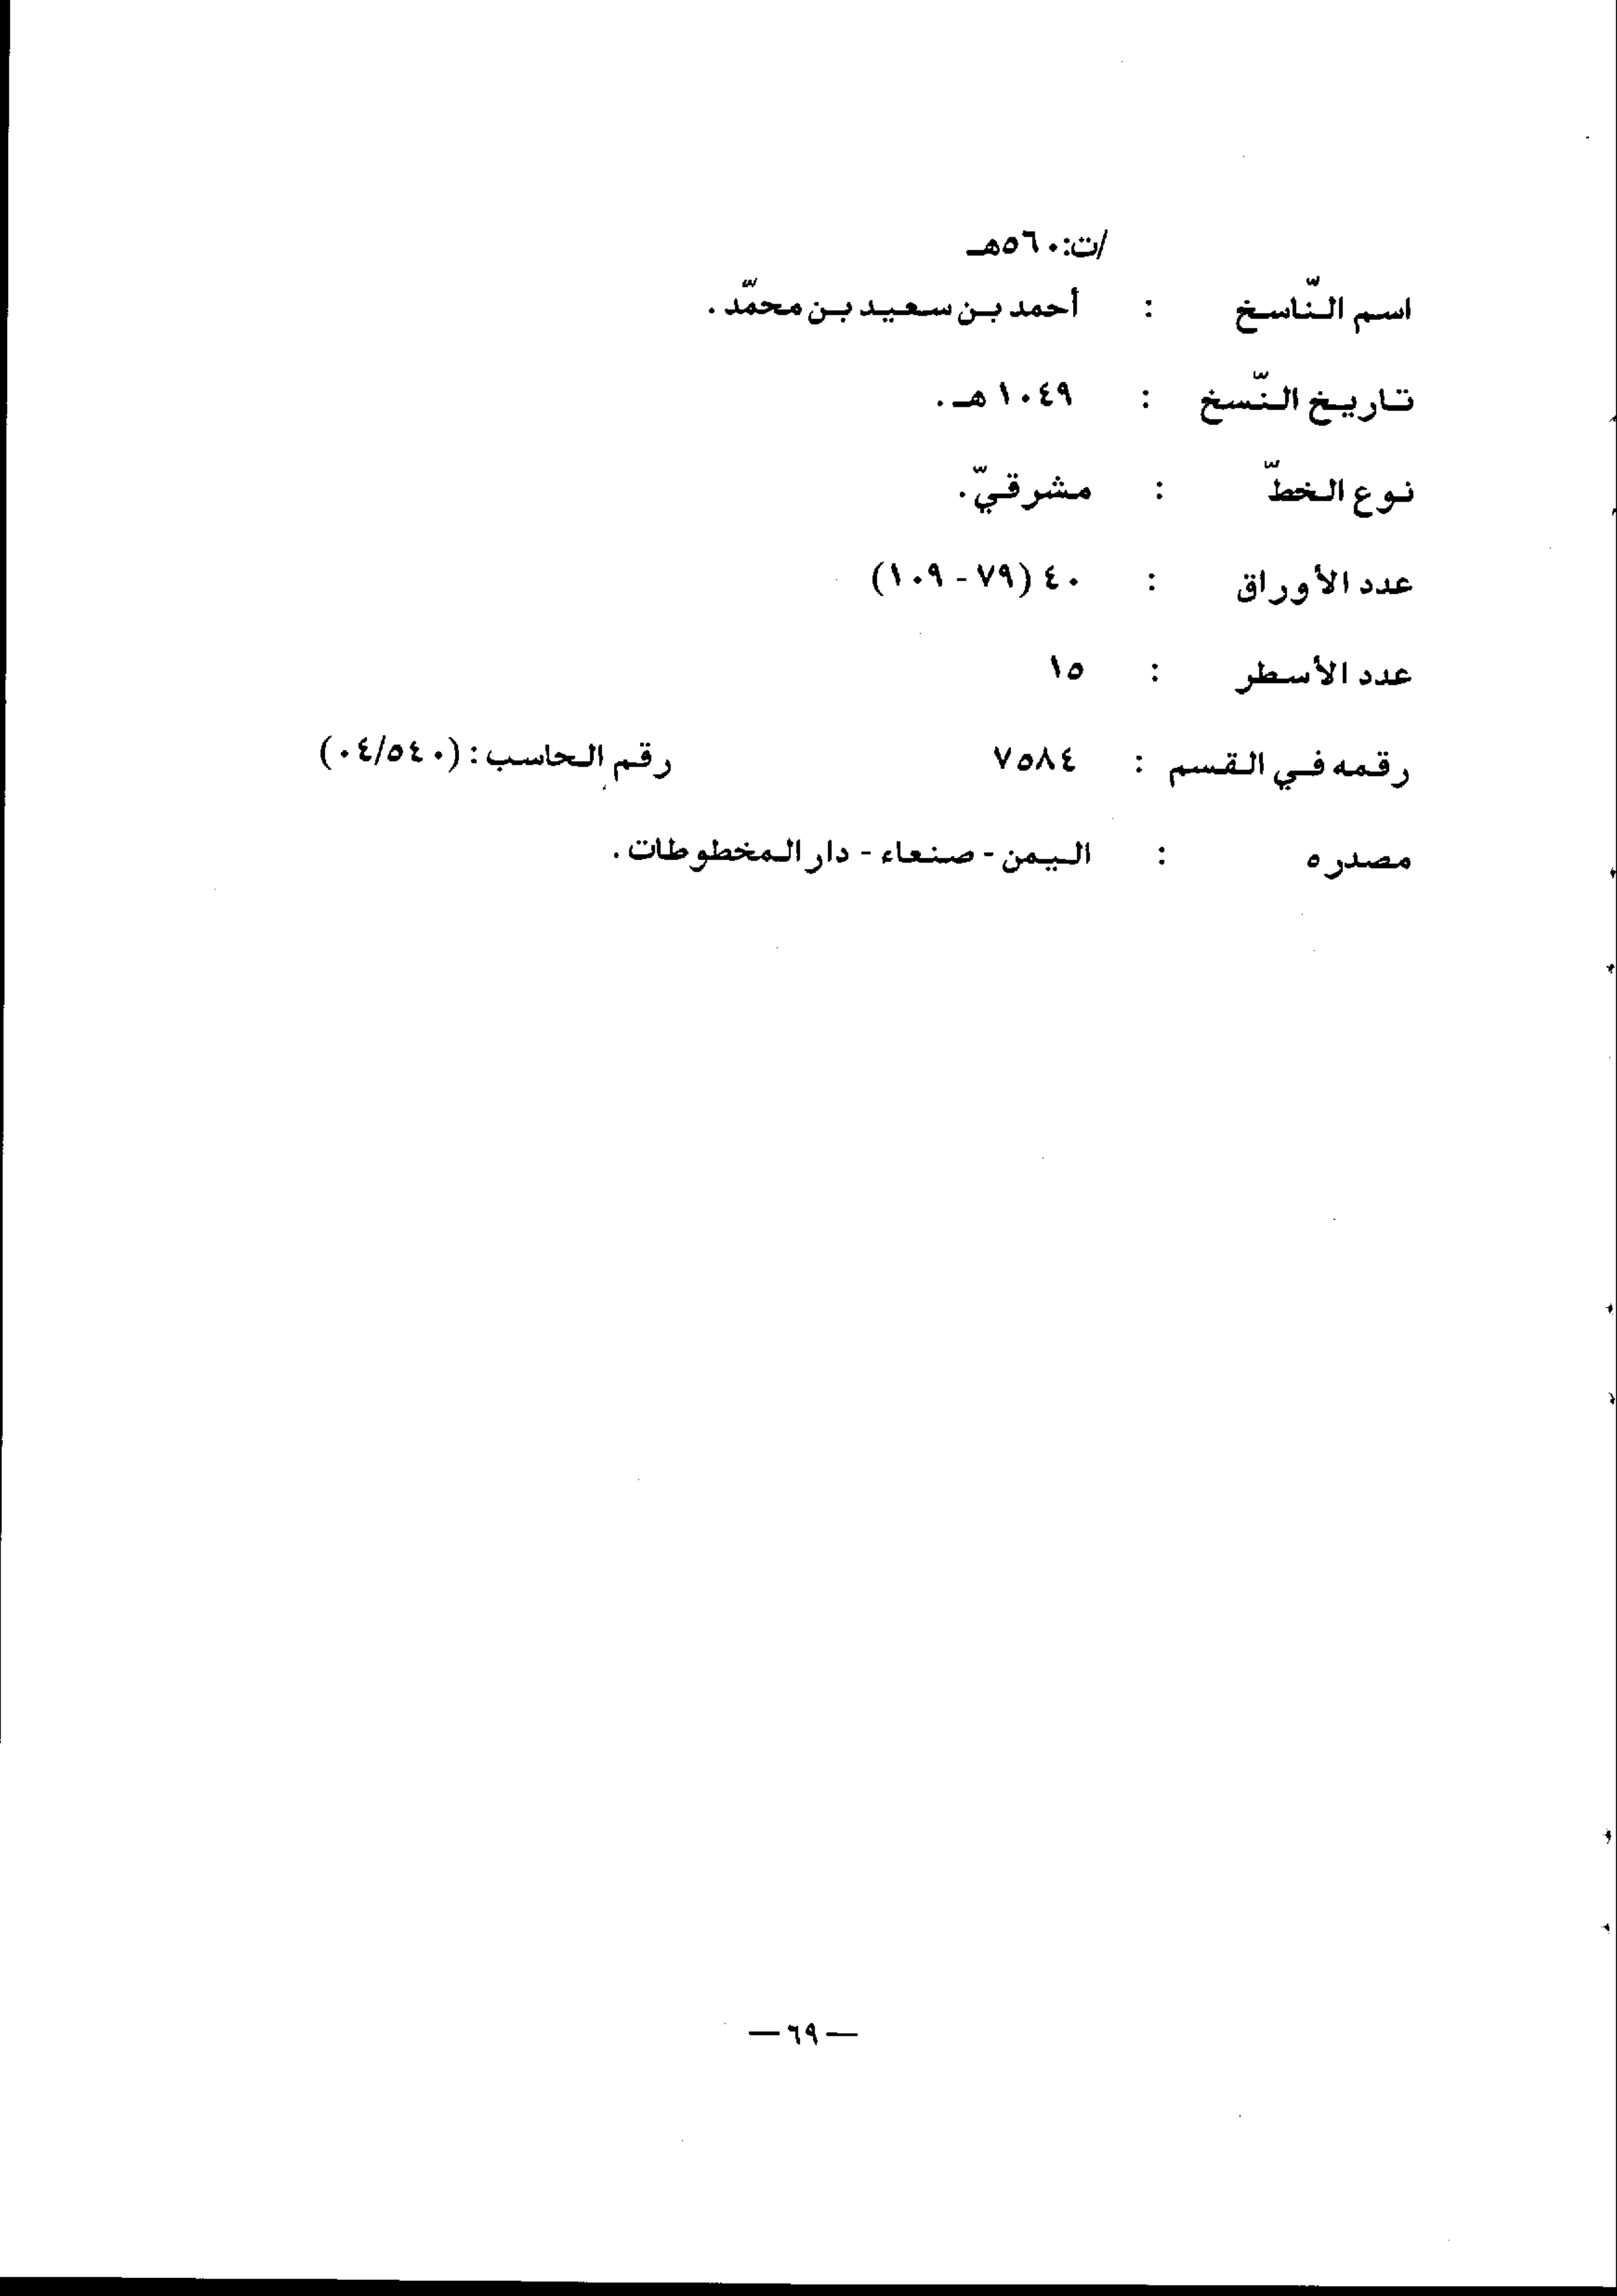 /ت:٥٦٠هـ
اسم النّاسخ : أحمد بن سعيد بن محمّد.
تاريخ النّسخ : ١٠٤٩هـ.
نوع الخطّ : مشرقيّ.
عدد الأوراق : ٤٠ (٧٩ - ١٠٩)
عدد الأسطر : ١٥
رقمه في القسم : ٧٥٨٤ رقم الحاسب: (٠٤/٥٤٠)
مصدره : اليمن - صنعاء - دار المخطوطات.
— ٦٩ —